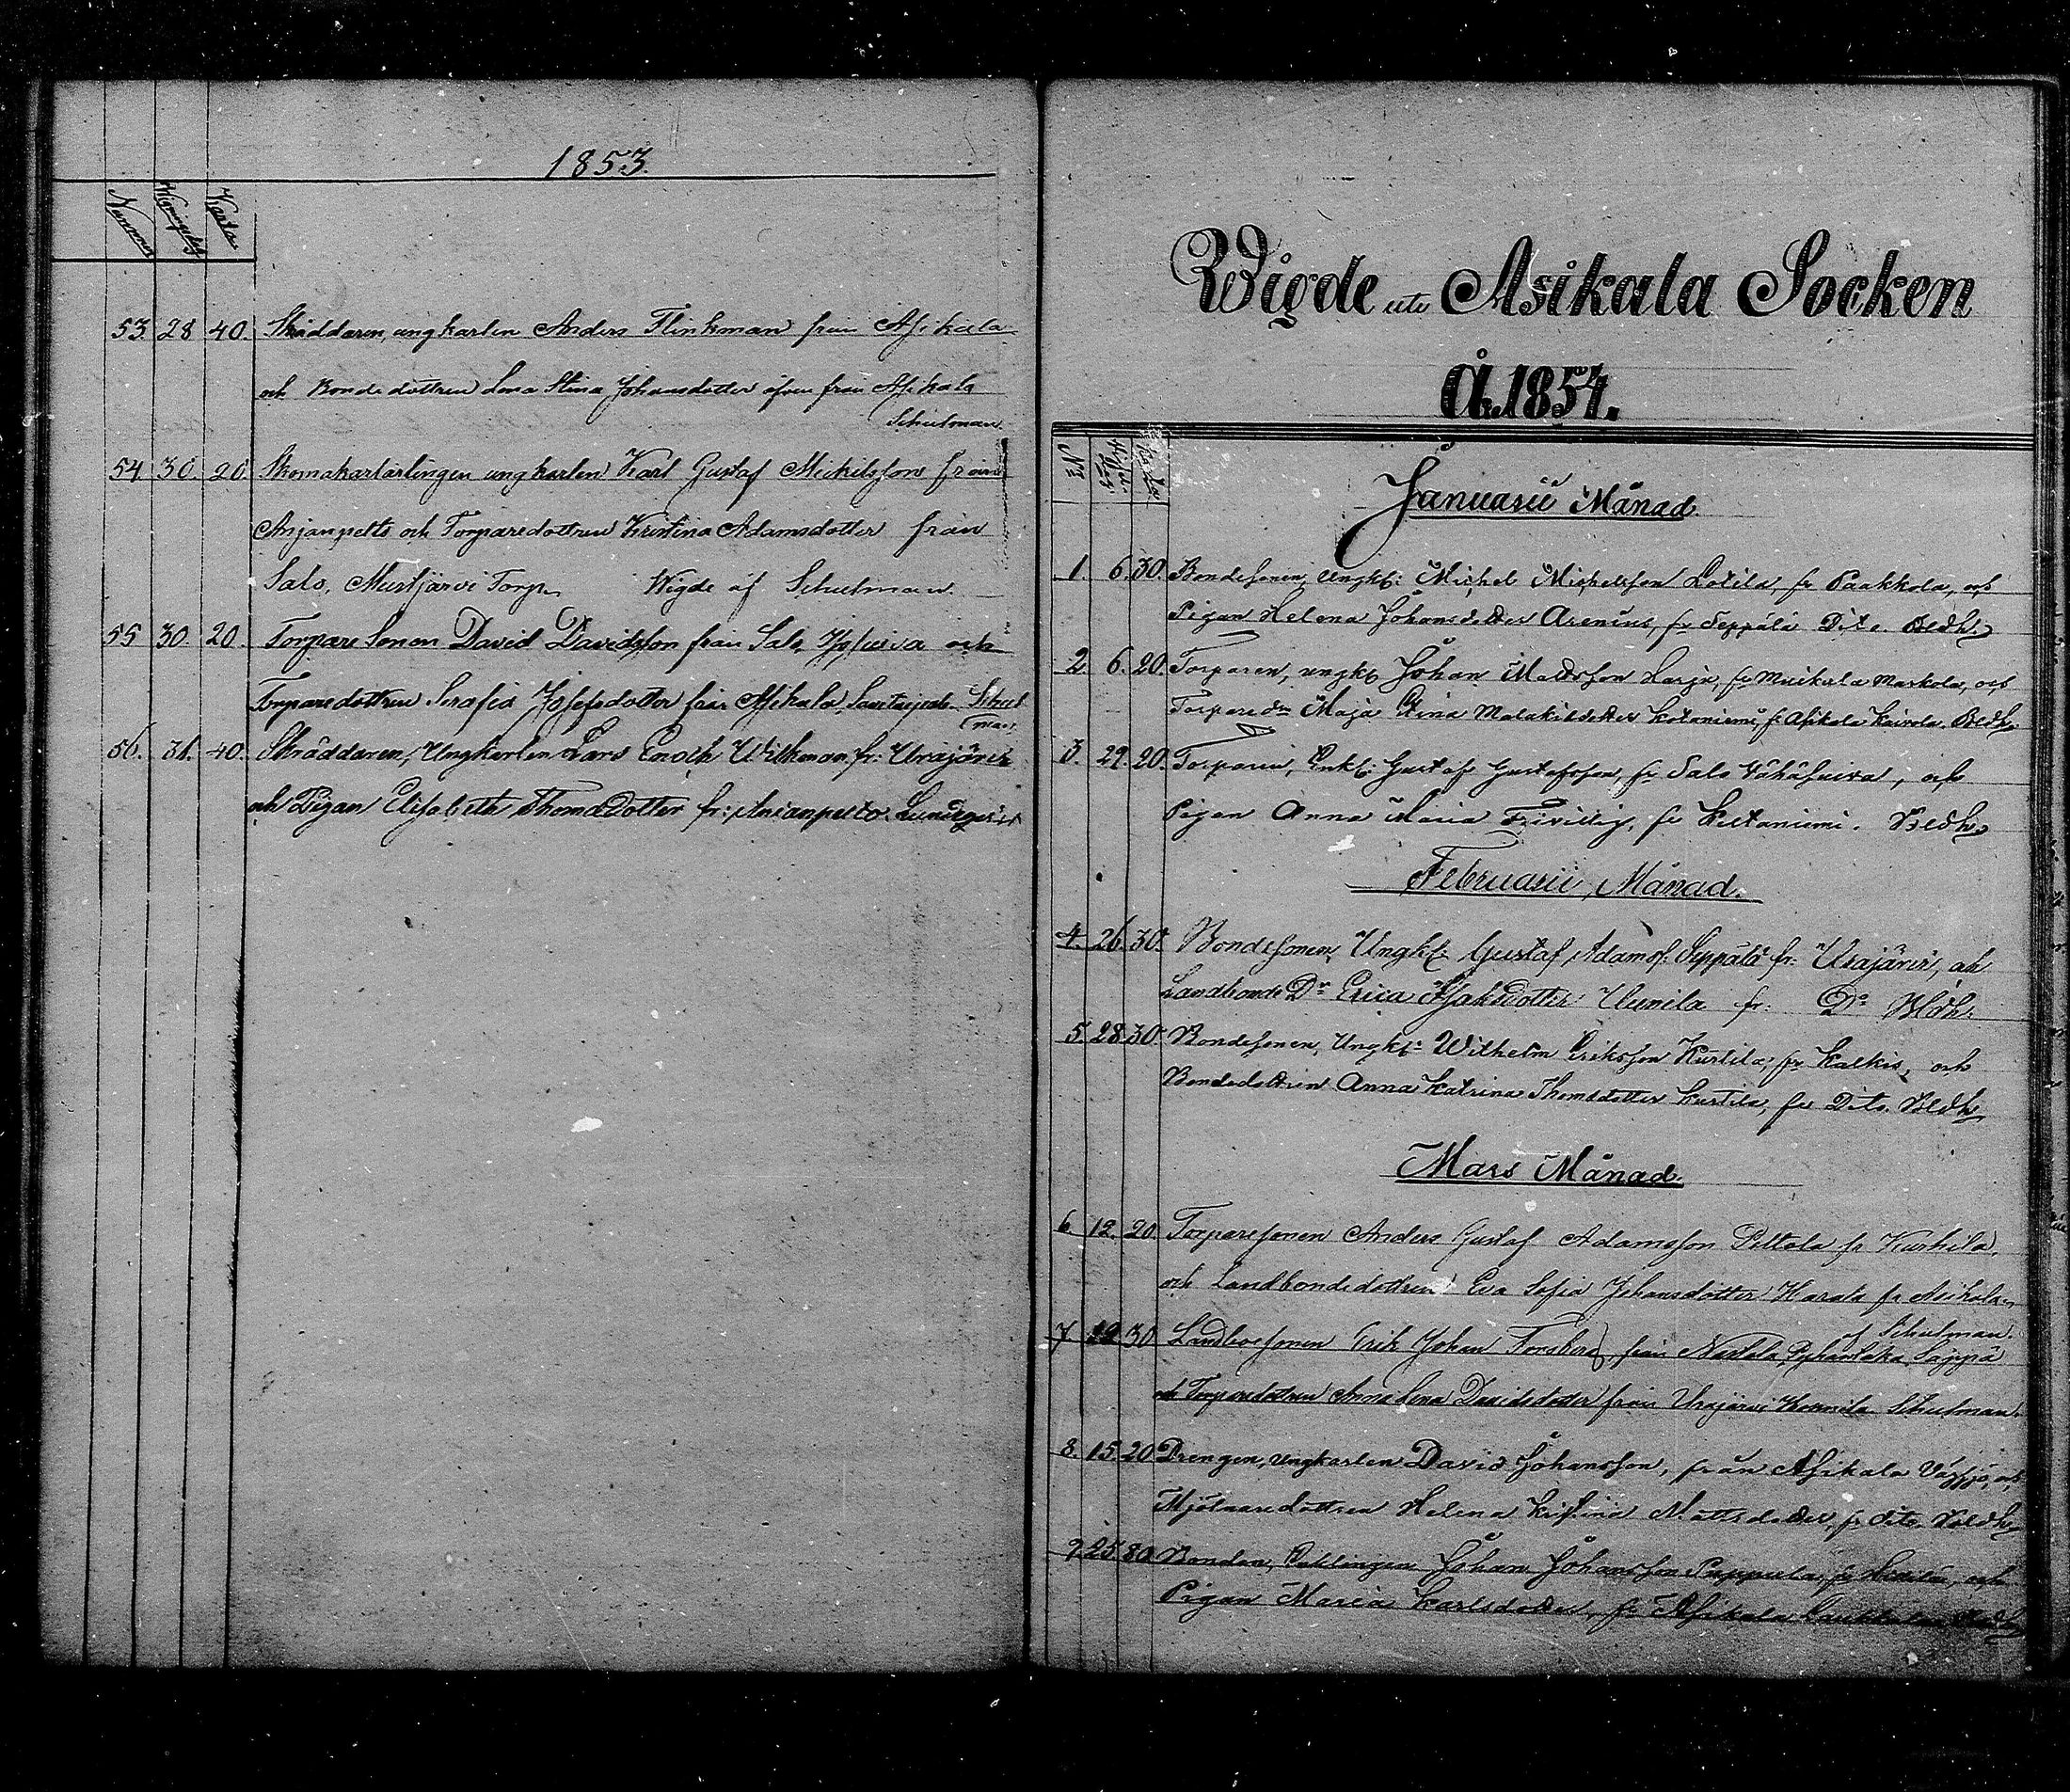 1853.
Nummer Wigningsdag Kasta
53. 28 40. Skräddaren, ungkarlen Anders Flinkman från Asikala
och Bondedottren Lena Stina Johansdotter äfven från Asikala
Schulman.
54. 30. 20. Skomakarlärlingen ungkarlen Karl Gustaf Mickelsson från
Anjanpelto och Torparedottren Kristina Adamsdotter från
Salo, Mustjärvi Torp. Wigde af Schulman.
55 30. 20. Torpare Sonen David Davidsson från Salo, och
Torparedottren Serafia Josefsdotter från Asikala, Schul
man.
56. 31. 40. Skräddaren, Ungkarlen Lars Enoch Wilkman fr: Urajärvi
och Pigan Elisabeth Thomædotter fr: Anianpelto.
Wigde uti Asikala Socken
År 1854.
No Wign. dag Kasta
Januarii Månad.
1. 6. 30. Bondesonen, Ungk: Michel Michelsson Lotila, fr Paakkola, och
Pigan Helena Johansdotter Arenius, fr Seppälä Dito. Bldh.
2. 6. 20. Torparen, ungk: Johan Mattsson Harju, fr Muikula Markola, och
Torparedr Maja Stina Malakisdotter Kotoniemi, fr Asikala Keivola. Bldh.
3. 29. 20. Torparen, Enkl: Gustaf Gustafsson, fr Salo Vähäsuira, och
Pigan Anna Maria Frivillig, fr Keltaniemi. Bldh.
Februarii Månad.
4. 26. 30. Bondesonen, Ungk: Gustaf Adamss: Seppälä fr: Urajärvi, och
Landbonde Dr Erica Isaksdotter Uunila fr: Do Bldh.
5. 28 30. Bondesonen, Ungk: Wilhelm Eriksson Kurtila, fr Kalkis, och
Bondedottren Anna Katrina Thomædotter Kurtila, fr Dito. Bldh.
Mars Månad.
6 12. 20. Torparesonen Anders Gustaf Adamsson Pittola fr Kurhila,
och Landbondedottren Eva Sofia Johansdotter Harala fr Asikala,
Schulman.
7 12 30 Landboesonen Erik Johan Forsberg från Nastola Seppä
och Torparedottren Anna Lena Davidsdotter från Urajärvi Schulman.
8. 15. 20 Drengen, ungkarlen David Johansson, från Asikala Vägsjö, och
Mjölnaredottren Helena Kristina Mattsdotter, fr dito. Bldh.
9. 25. 80 Bonden, Enklingen Johan Johansson Puppula, fr och
Pigan Maria Karlsdotter, fr Asikala Bldh.